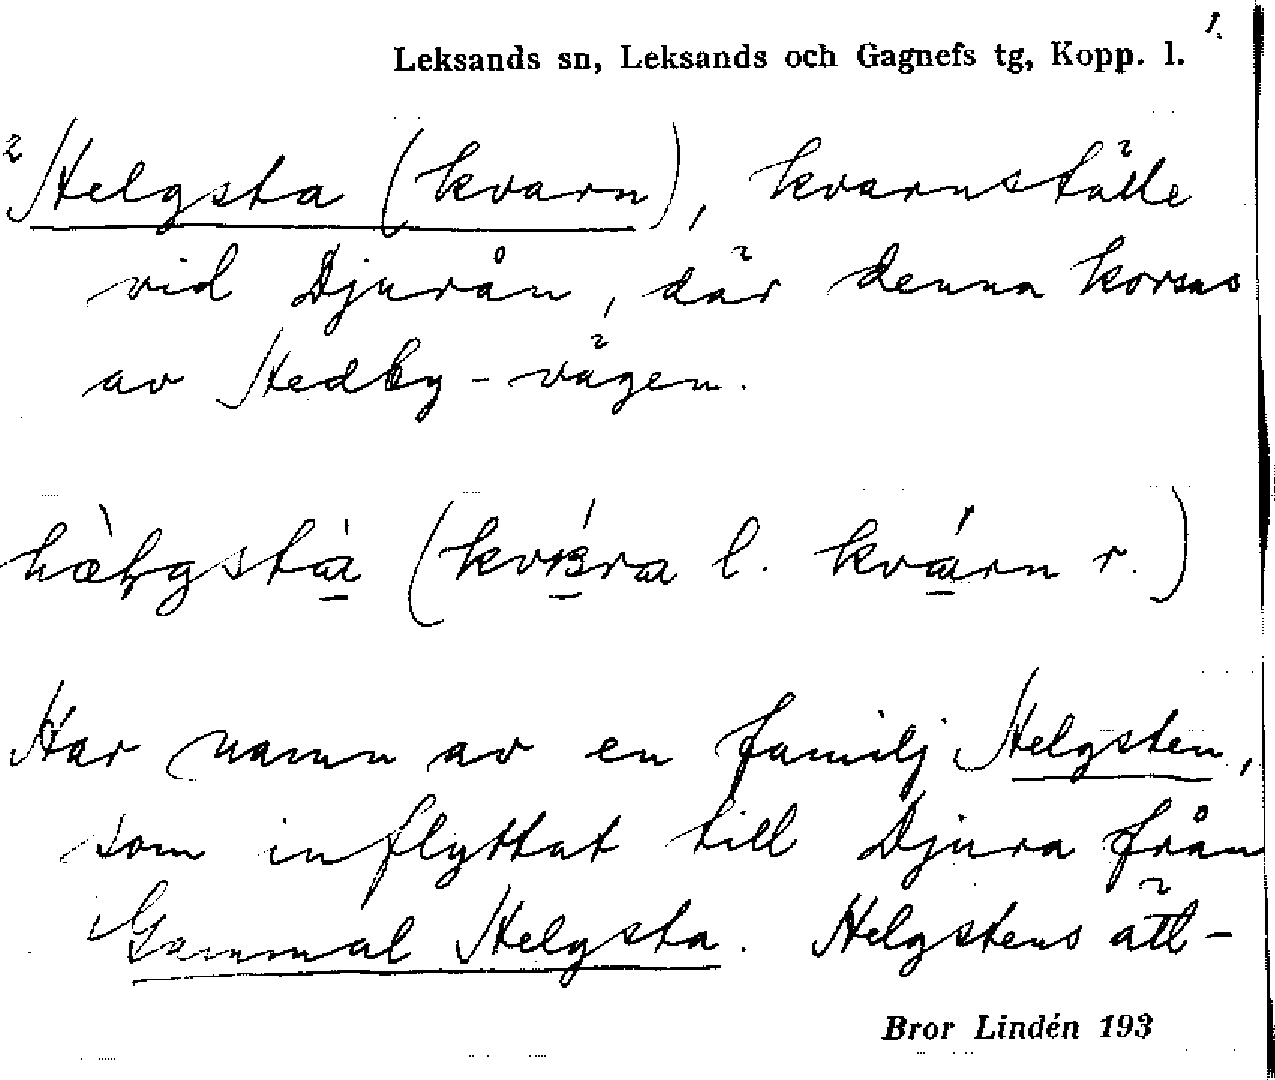 1.
Leksands sn, Leksands och Gagnefs tg, Kopp. l.
Helgsta (kvarn), kvarnställe
vid Djurån, där denna korsas
av Hedby-vägen.
(l. r.)
Har namn av en familj Helgsten,
som inflyttat till Djura från
Gammal Helgsta. Helgstens ätt-
Bror Lindén 193